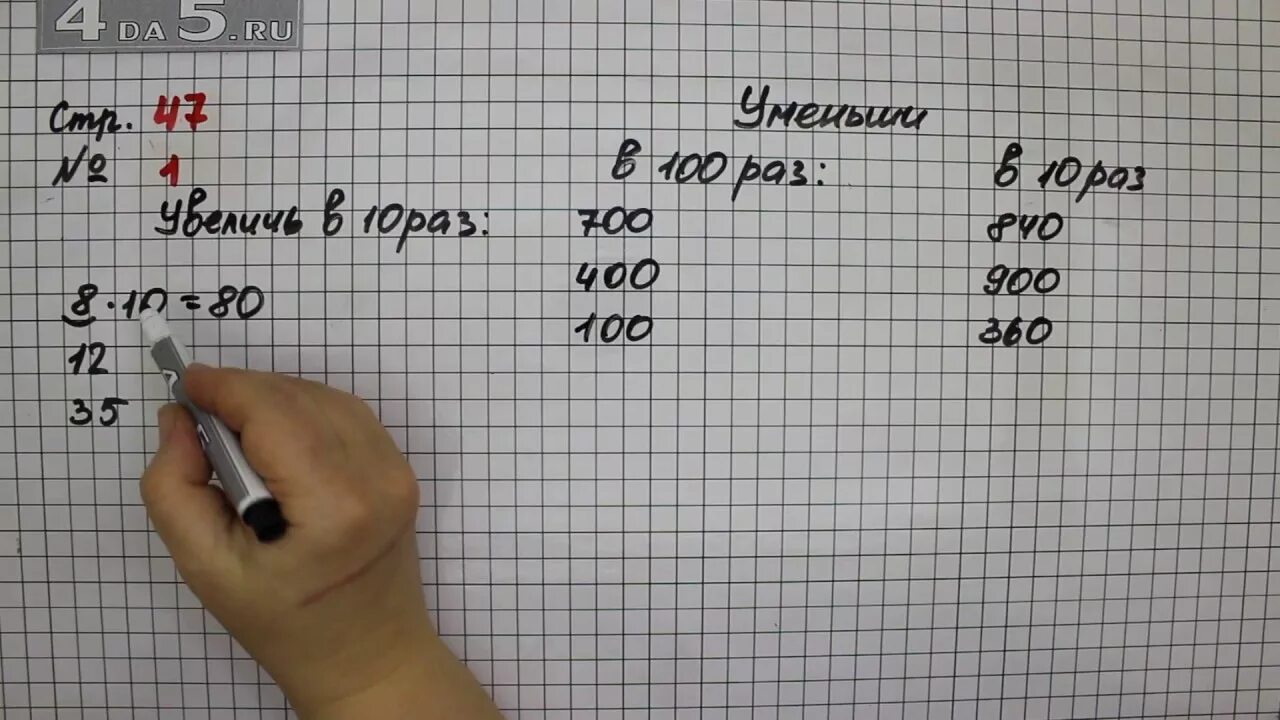 4DA5.RU
Стр. 47
№ 1
Увеличь в 10 раз:
8 · 10 = 80
12
35
Уменьши
в 100 раз:
700
400
100
в 10 раз
840
900
360